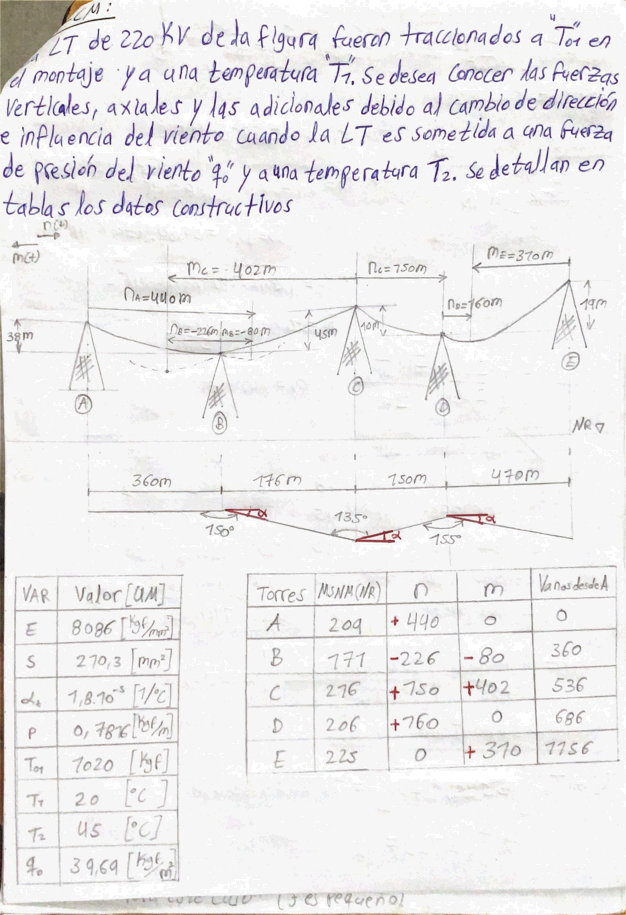 CM:
LT de 220 KV de la figura fueron traccionados a "To1 en
el montaje y a una temperatura "T1". Se desea conocer las fuerzas
verticales, axiales y las adicionales debido al cambio de dirección
e influencia del viento cuando la LT es sometida a una fuerza
de presión del viento "q0" y a una temperatura T2. Se detallan en
tablas los datos constructivos
n(+)
m(+)
mC=-402m
nC=150m
mE=310m
nA=440m
nD=160m
nB=-226m
mB=-80m
38m
45m
10m
19m
A
B
C
D
E
NR
360m
176m
150m
470m
150°
α
135°
α
155°
α
VAR Valor [UM]
E 8086 [Kgf/mm²]
S 210,3 [mm²]
αt 1,8.10⁻⁵ [1/°C]
P 0,7816 [Kgf/m]
To1 1020 [Kgf]
T1 20 [°C]
T2 45 [°C]
q0 39,69 [Kgf/m²]
Torres MSNM(NR) n m Vanos desde A
A 209 +440 0 0
B 171 -226 -80 360
C 216 +150 +402 536
D 206 +160 0 686
E 225 0 +310 1156
(s es pequeño)